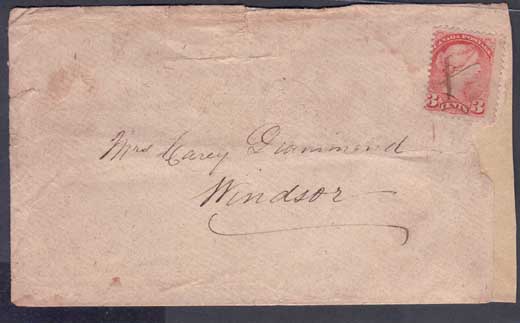 CANADA POSTAGE
3 CENTS 3
Mrs Carey Diammond
Windsor